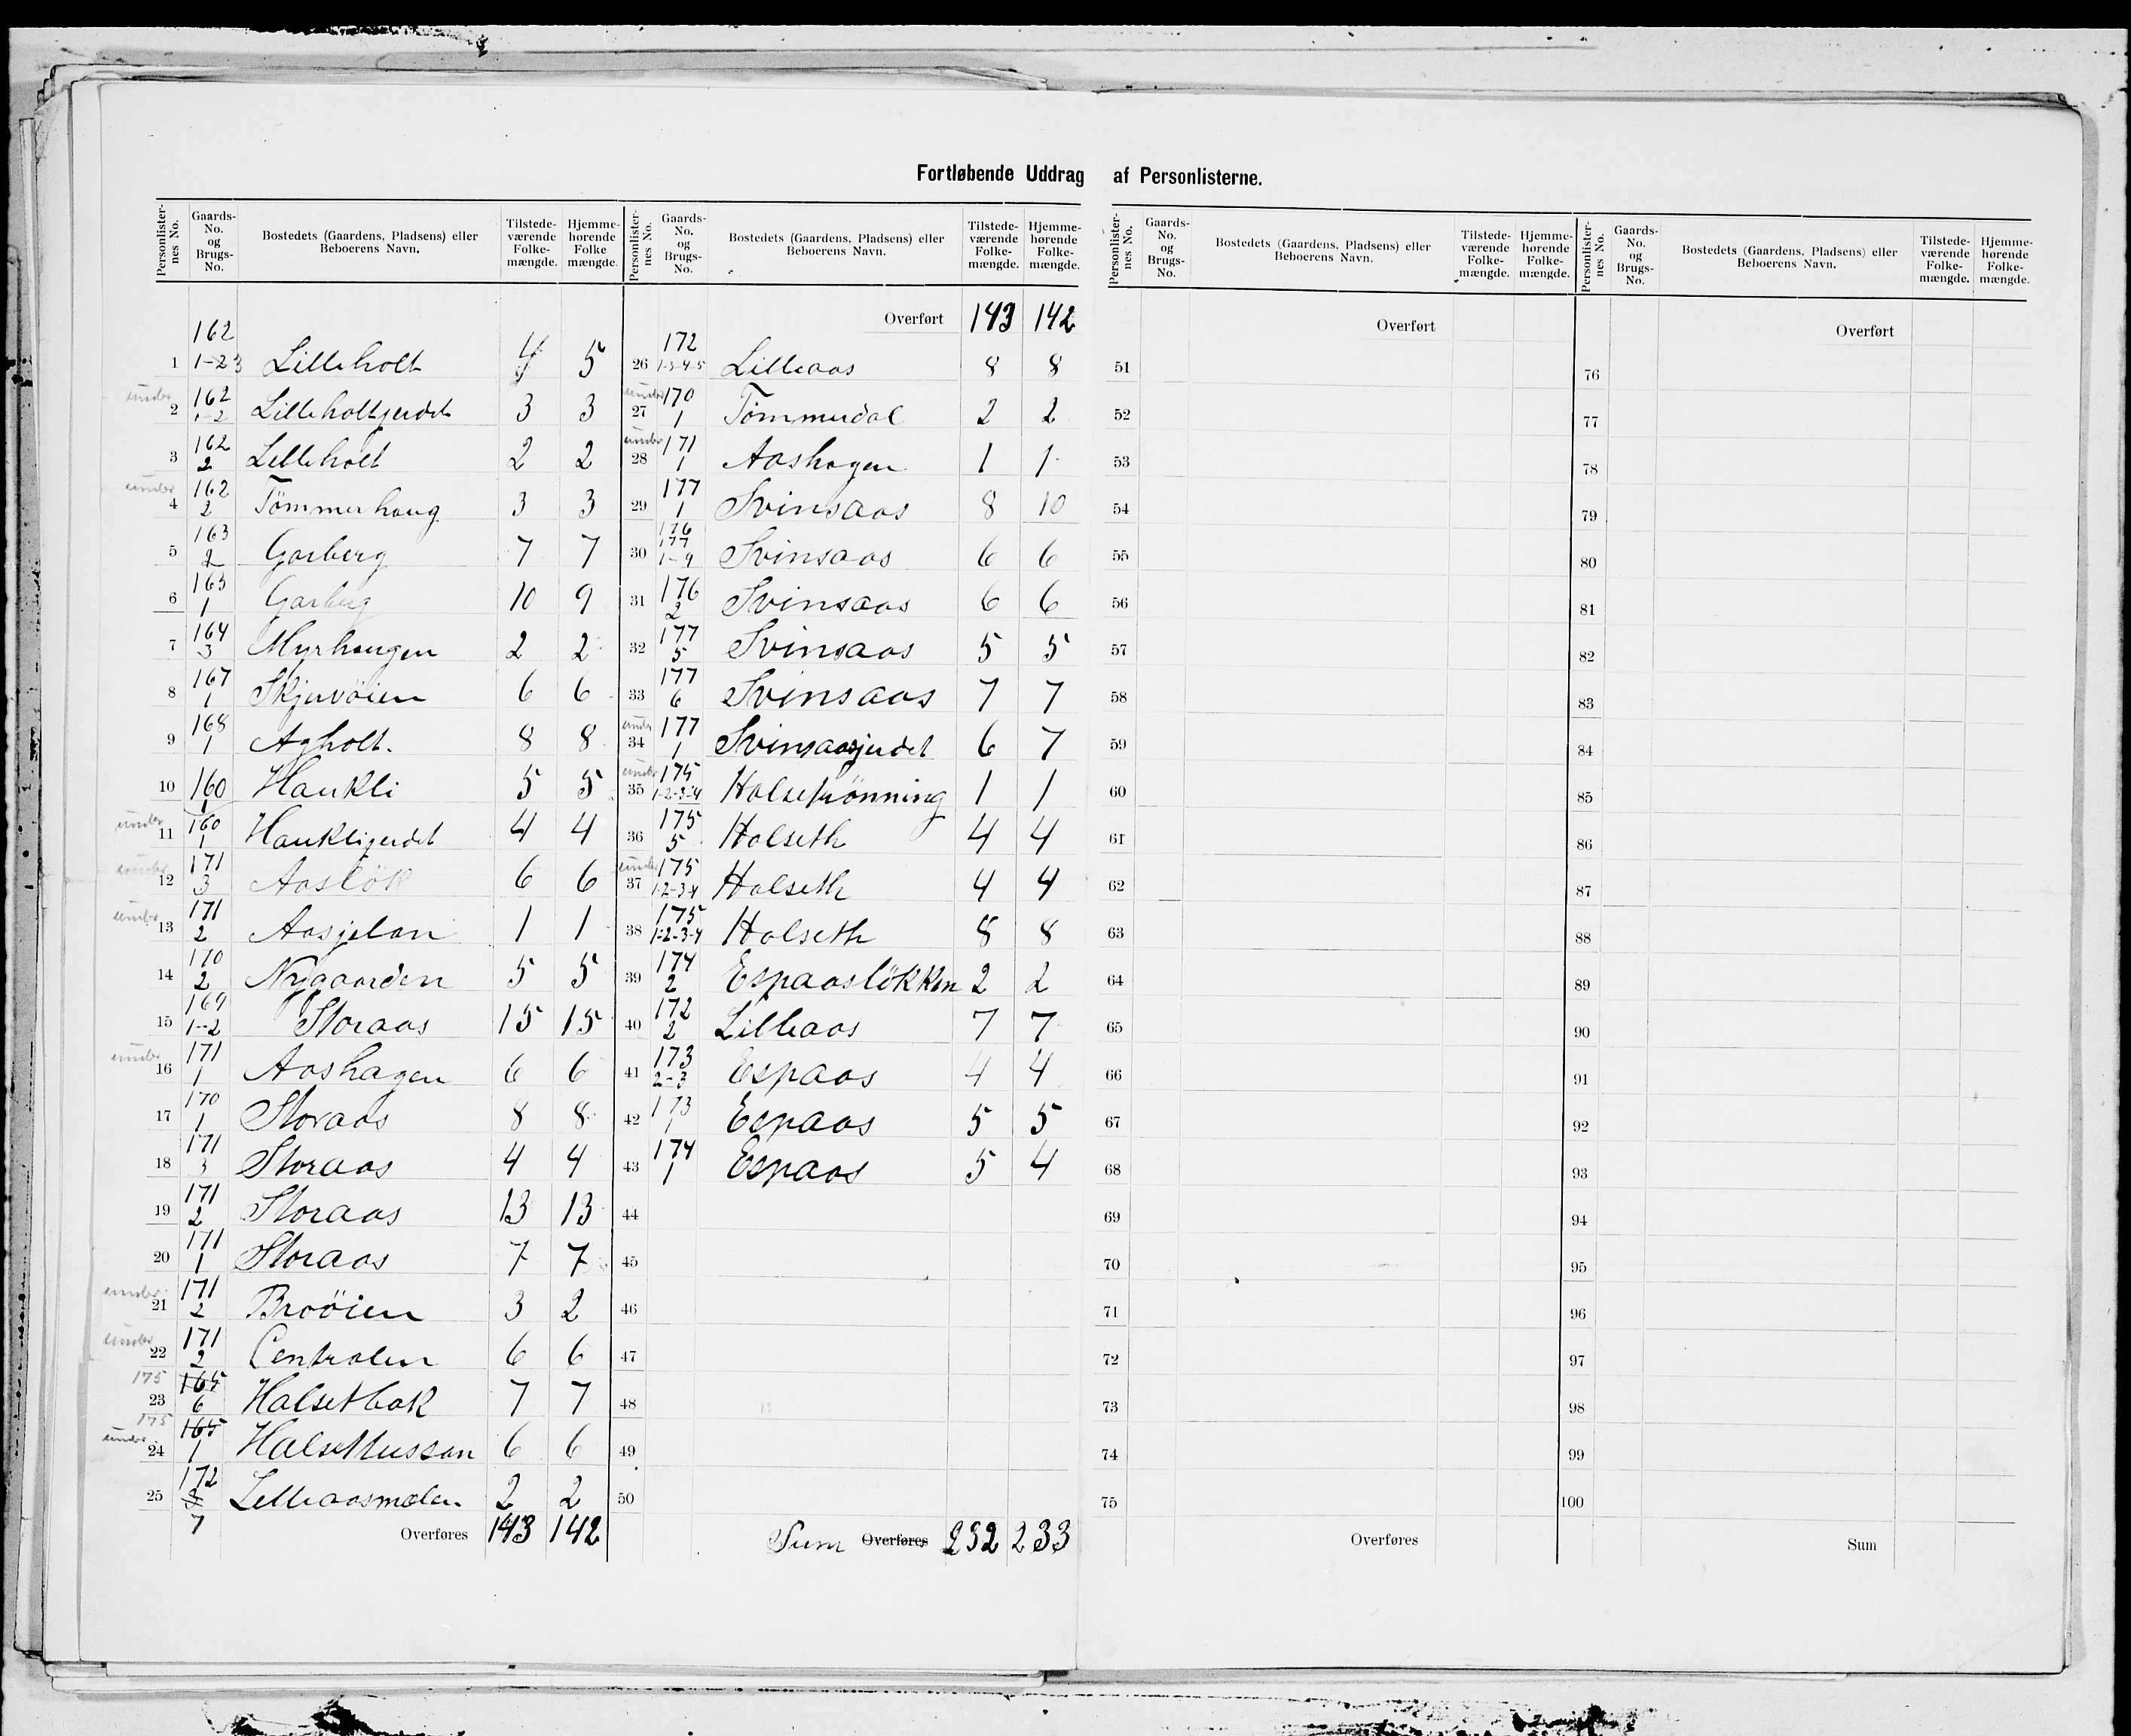 Fortløbende Uddrag af Personlisterne.
Personlisternes No. | Gaards-No. og Brugs-No. | Bostedets (Gaardens, Pladsens) eller Beboerens Navn. | Tilstedeværende Folkemængde. | Hjemmehørende Folkemængde.
1 | 162 1-2 3 | Lilleholt | 4 | 5
under 2 | 162 1-2 | Lilleholtgjerdet | 3 | 3
3 | 162 2 | Lilleholt | 2 | 2
under 4 | 162 2 | Tömmerhaug | 3 | 3
5 | 163 2 | Garberg | 7 | 7
6 | 163 1 | Garberg | 10 | 9
7 | 164 3 | Myrhaugen | 2 | 2
8 | 167 1 | Skjervöien | 6 | 6
9 | 168 1 | Agholt. | 8 | 8
10 | 160 1 | Haukli | 5 | 5
under 11 | 160 1 | Haukligjerdet | 4 | 4
under 12 | 171 3 | Aaslök | 6 | 6
under 13 | 171 2 | Aasjelan | 1 | 1
14 | 170 2 | Nygaarden | 5 | 5
15 | 169 1-2 | Storaas | 15 | 15
under 16 | 171 1 | Aashagen | 6 | 6
17 | 170 1 | Storaas | 8 | 8
18 | 171 3 | Storaas | 4 | 4
19 | 171 2 | Storaas | 13 | 13
20 | 171 1 | Storaas | 7 | 7
under 21 | 171 2 | Broöien | 3 | 2
under 22 | 171 2 | Centralen | 6 | 6
175 23 | 165 6 | Halsetbak | 7 | 7
175 under 24 | 165 1 | Halsethussan | 6 | 6
25 | 172 8 7 | Lilleaasmælen | 2 | 2
Overføres | 143 | 142
Personlisternes No. | Gaards-No. og Brugs-No. | Bostedets (Gaardens, Pladsens) eller Beboerens Navn. | Tilstedeværende Folkemængde. | Hjemmehørende Folkemængde.
Overført | 143 | 142
26 | 172 1-3-4-5 | Lilleaas | 8 | 8
under 27 | 170 1 | Tömmerdal | 2 | 2
under 28 | 171 1 | Aashagen | 1 | 1
29 | 177 1 | Svinsaas | 8 | 10
30 | 176 177 1-9 | Svinsaas | 6 | 6
31 | 176 2 | Svinsaas | 6 | 6
32 | 177 5 | Svinsaas | 5 | 5
33 | 177 6 | Svinsaas | 7 | 7
under 34 | 177 1 | Svinsaasgjerdet | 6 | 7
under 35 | 175 1-2-3-4 | Halsetrönning | 1 | 1
36 | 175 5 | Halseth | 4 | 4
under 37 | 175 1-2-3-4 | Halseth | 4 | 4
38 | 175 1-2-3-4 | Halseth | 8 | 8
39 | 174 2 | Espaaslökken | 2 | 2
40 | 172 2 | Lilleaas | 7 | 7
41 | 173 2-3 | Espaas | 4 | 4
42 | 173 1 | Espaas | 5 | 5
43 | 174 1 | Espaas | 5 | 4
44
45
46
47
48
49
50
Sum Overføres | 232 | 233
Personlisternes No. | Gaards-No. og Brugs-No. | Bostedets (Gaardens, Pladsens) eller Beboerens Navn. | Tilstedeværende Folkemængde. | Hjemmehørende Folkemængde.
Overført
51
52
53
54
55
56
57
58
59
60
61
62
63
64
65
66
67
68
69
70
71
72
73
74
75
Overføres
Personlisternes No. | Gaards-No. og Brugs-No. | Bostedets (Gaardens, Pladsens) eller Beboerens Navn. | Tilstedeværende Folkemængde. | Hjemmehørende Folkemængde.
Overført
76
77
78
79
80
81
82
83
84
85
86
87
88
89
90
91
92
93
94
95
96
97
98
99
100
Sum